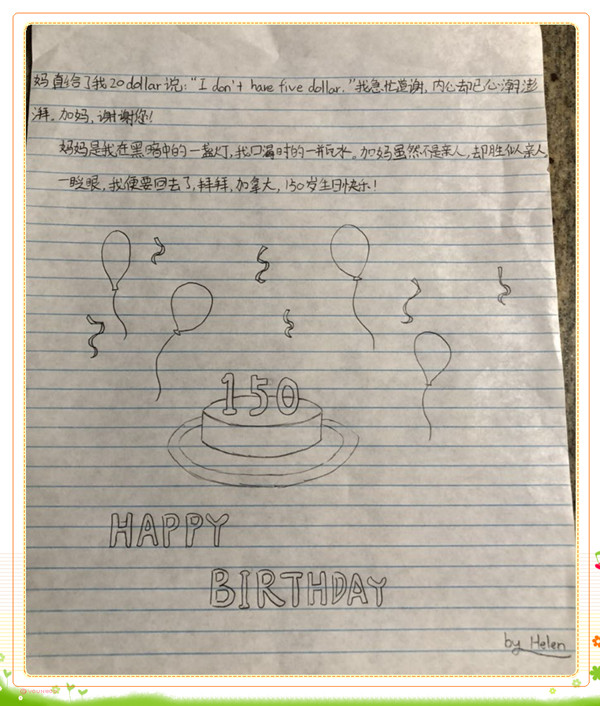 妈直给了我20dollar说："I don't have five dollar."我急忙道谢，内心却已心潮澎
湃。加妈，谢谢您！
妈妈是我在黑暗中的一盏灯，我口渴时的一瓶水。加妈虽然不是亲人，却胜似亲人
一眨眼，我便要回去了，拜拜，加拿大，150岁生日快乐！
150
HAPPY
BIRTHDAY
by Helen